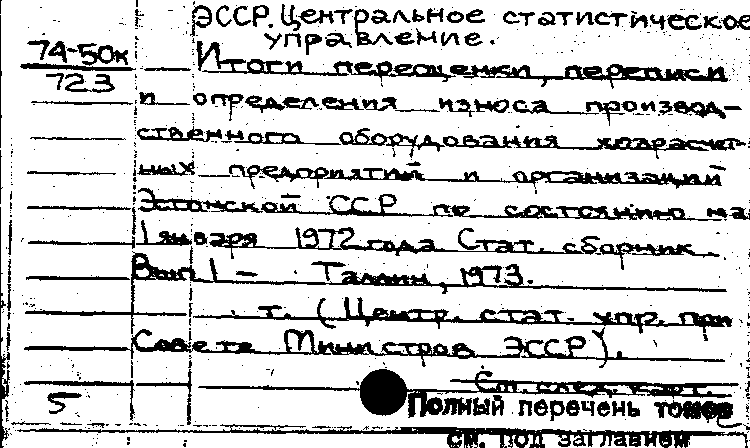 ЭССР. Центральное статистическое
управление.
74-50к
723
Итоги переоценки, переписи
и определения износа производ-
ственного оборудования хозрасчет-
ных предприятий и организаций
Эстонской ССР по состоянию на
1 января 1972 года Стат. сборник
Вып 1 - Таллин, 1973.
т. (Центр. стат. упр. при
Совете Министров ЭССР).
См. след. карт.
5
Полный перечень томов
см. под заглавием